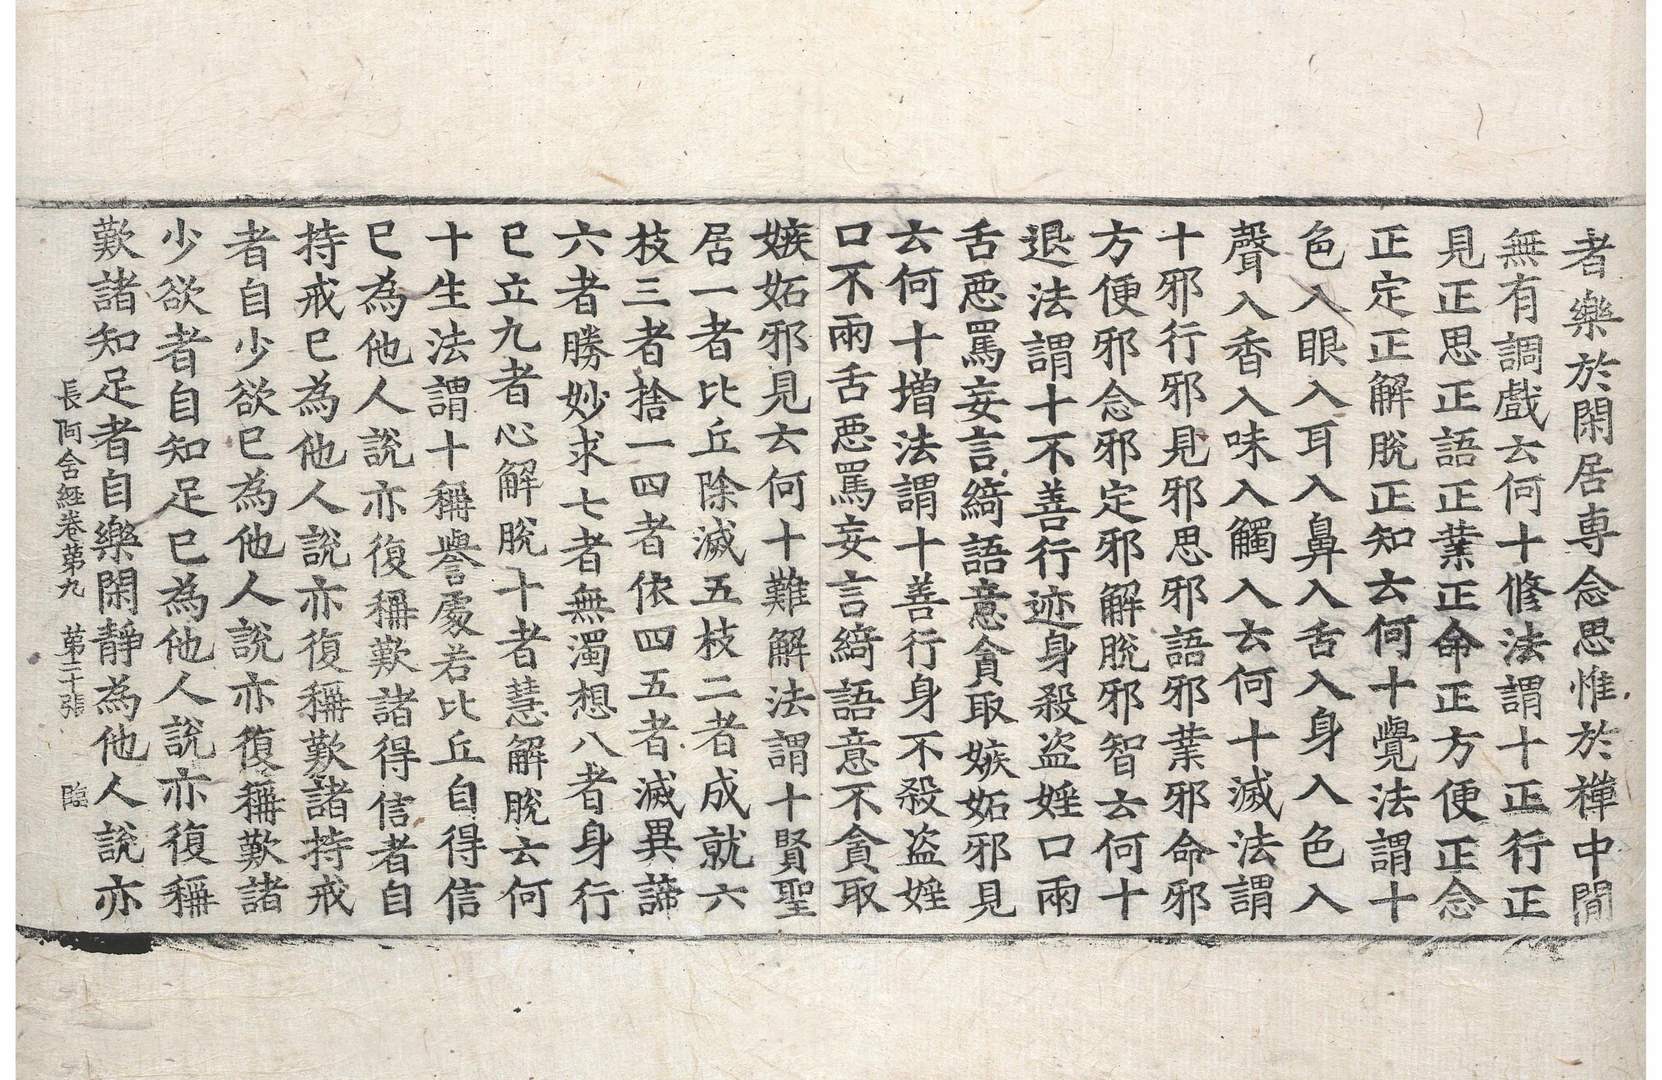 者樂於閑居專念思惟於禪中間
無有調戲云何十修法謂十正行正
見正思正語正業正命正方便正念
正定正解脫正知云何十覺法謂十
色入眼入耳入鼻入舌入身入色入
聲入香入味入觸入云何十滅法謂
十邪行邪見邪思邪語邪業邪命邪
方便邪念邪定邪解脫邪智云何十
退法謂十不善行迹身殺盜婬口兩
舌惡罵妄言綺語意貪取嫉妬邪見
云何十增法謂十善行身不殺盜婬
口不兩舌惡罵妄言綺語意不貪取
嫉妬邪見云何十難解法謂十賢聖
居一者比丘除滅五枝二者成就六
枝三者捨一四者依四五者滅異諦
六者勝妙求七者無濁想八者身行
已立九者心解脫十者慧解脫云何
十生法謂十稱譽處若比丘自得信
已為他人說亦復稱歎諸得信者自
持戒已為他人說亦復稱歎諸持戒
者自少欲已為他人說亦復稱歎諸
少欲者自知足已為他人說亦復稱
歎諸知足者自樂閑靜為他人說亦
長阿含經卷第九 第二十張 臨